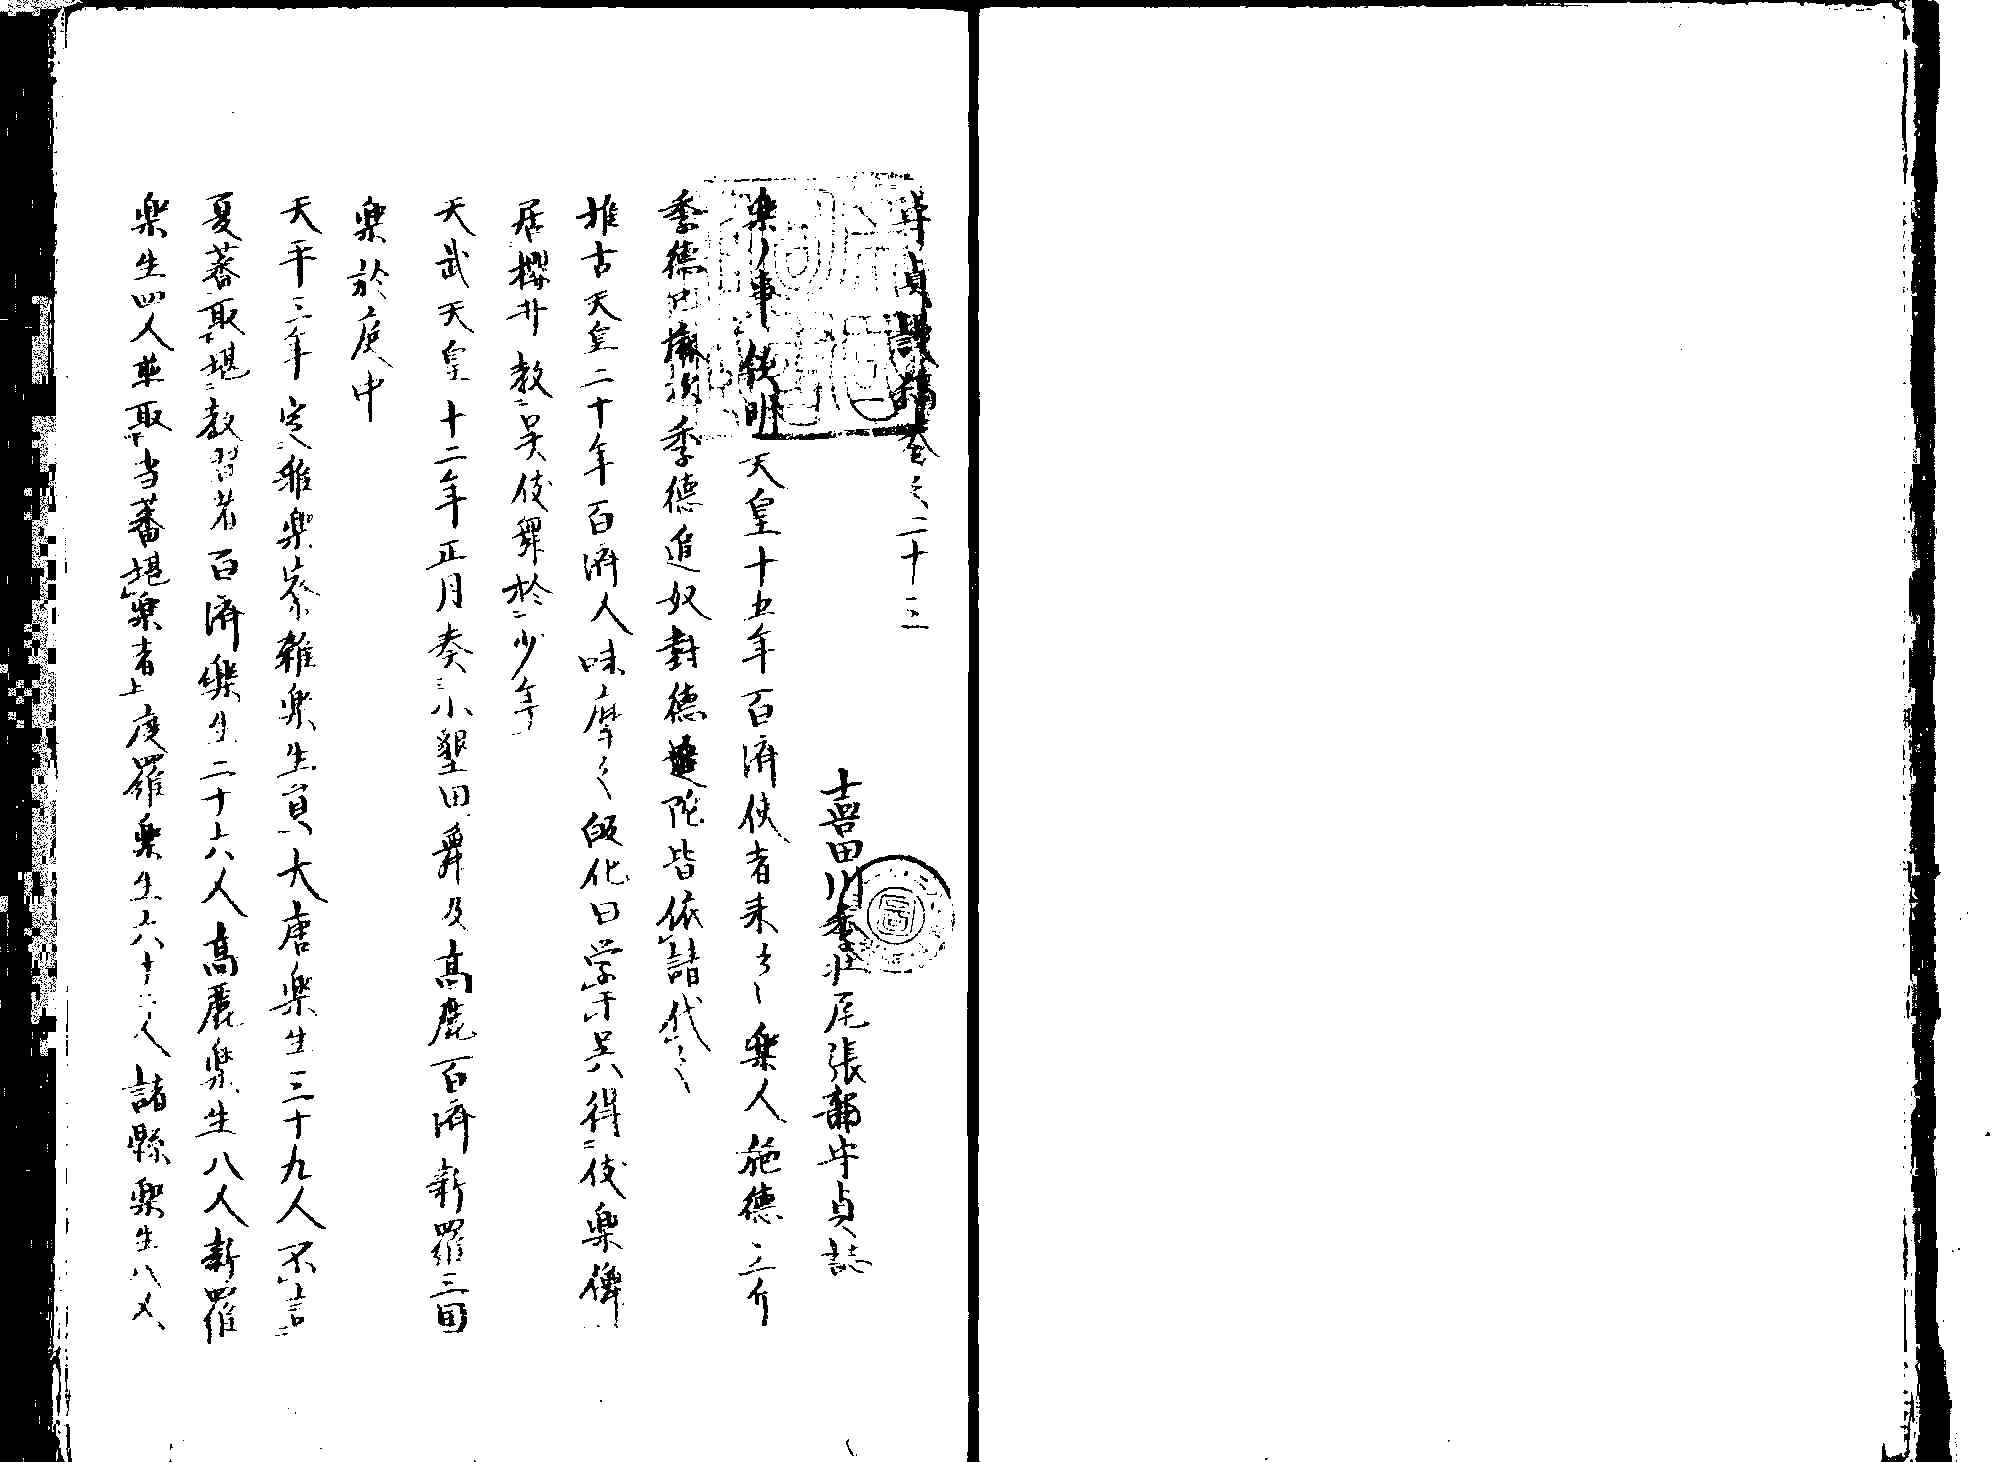 守貞謾稿巻之二十三
喜田川季荘尾張部守貞誌
楽ノ事 欽明天皇十五年百済使者来ル 楽人施徳三斤
季徳己麻次季徳進奴對徳進陀皆依請代之
推古天皇二十年百済人味摩之皈化曰学于呉得伎楽儛
居櫻井教呉伎舞於少年
天武天皇十二年正月奏小墾田舞及高麗百済新羅三国
楽於庭中
天平三年定雅楽寮雑楽生員大唐楽生三十九人不言
夏蕃取堪教習者百済楽生二十六人高麗楽生八人新羅
楽生四人並取当蕃堪楽者上度羅楽生六十二人諸縣楽生八人